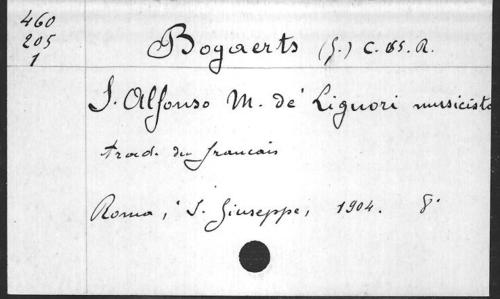 460
205
1
Bogaerts (J.) C. SS. R.
S. Alfonso M. de' Liguori musicista
trad. du francais
Roma, S. Giuseppe, 1904. 8°